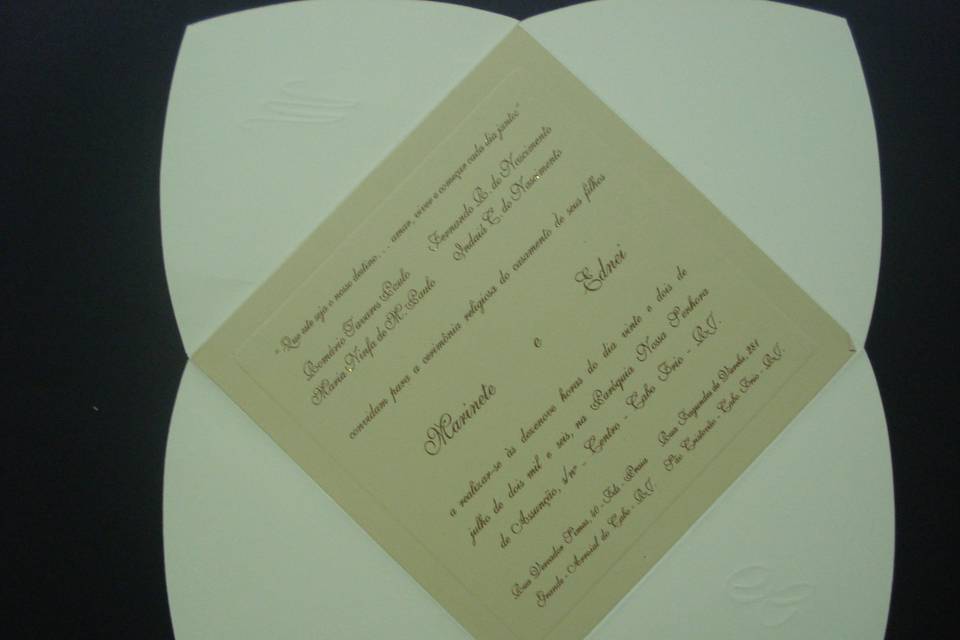 "Que este seja o nosso destino... amar, viver e começar cada dia juntos"
Romário Tavares Paulo Fernando B. do Nascimento
Maria Ninfa de M. Paulo Indaiá C. do Nascimento
convidam para a cerimônia religiosa do casamento de seus filhos
Marinete e Ednei
a realizar-se às dezenove horas do dia vinte e dois de
julho de dois mil e seis, na Paróquia Nossa Senhora
de Assunção, s/nº - Centro - Cabo Frio - RJ.
Rua Vereador 40 - Praia Rua Fagundes de Varela, 281
Grande - Arraial do Cabo - RJ. São Cristovão - Cabo Frio - RJ.